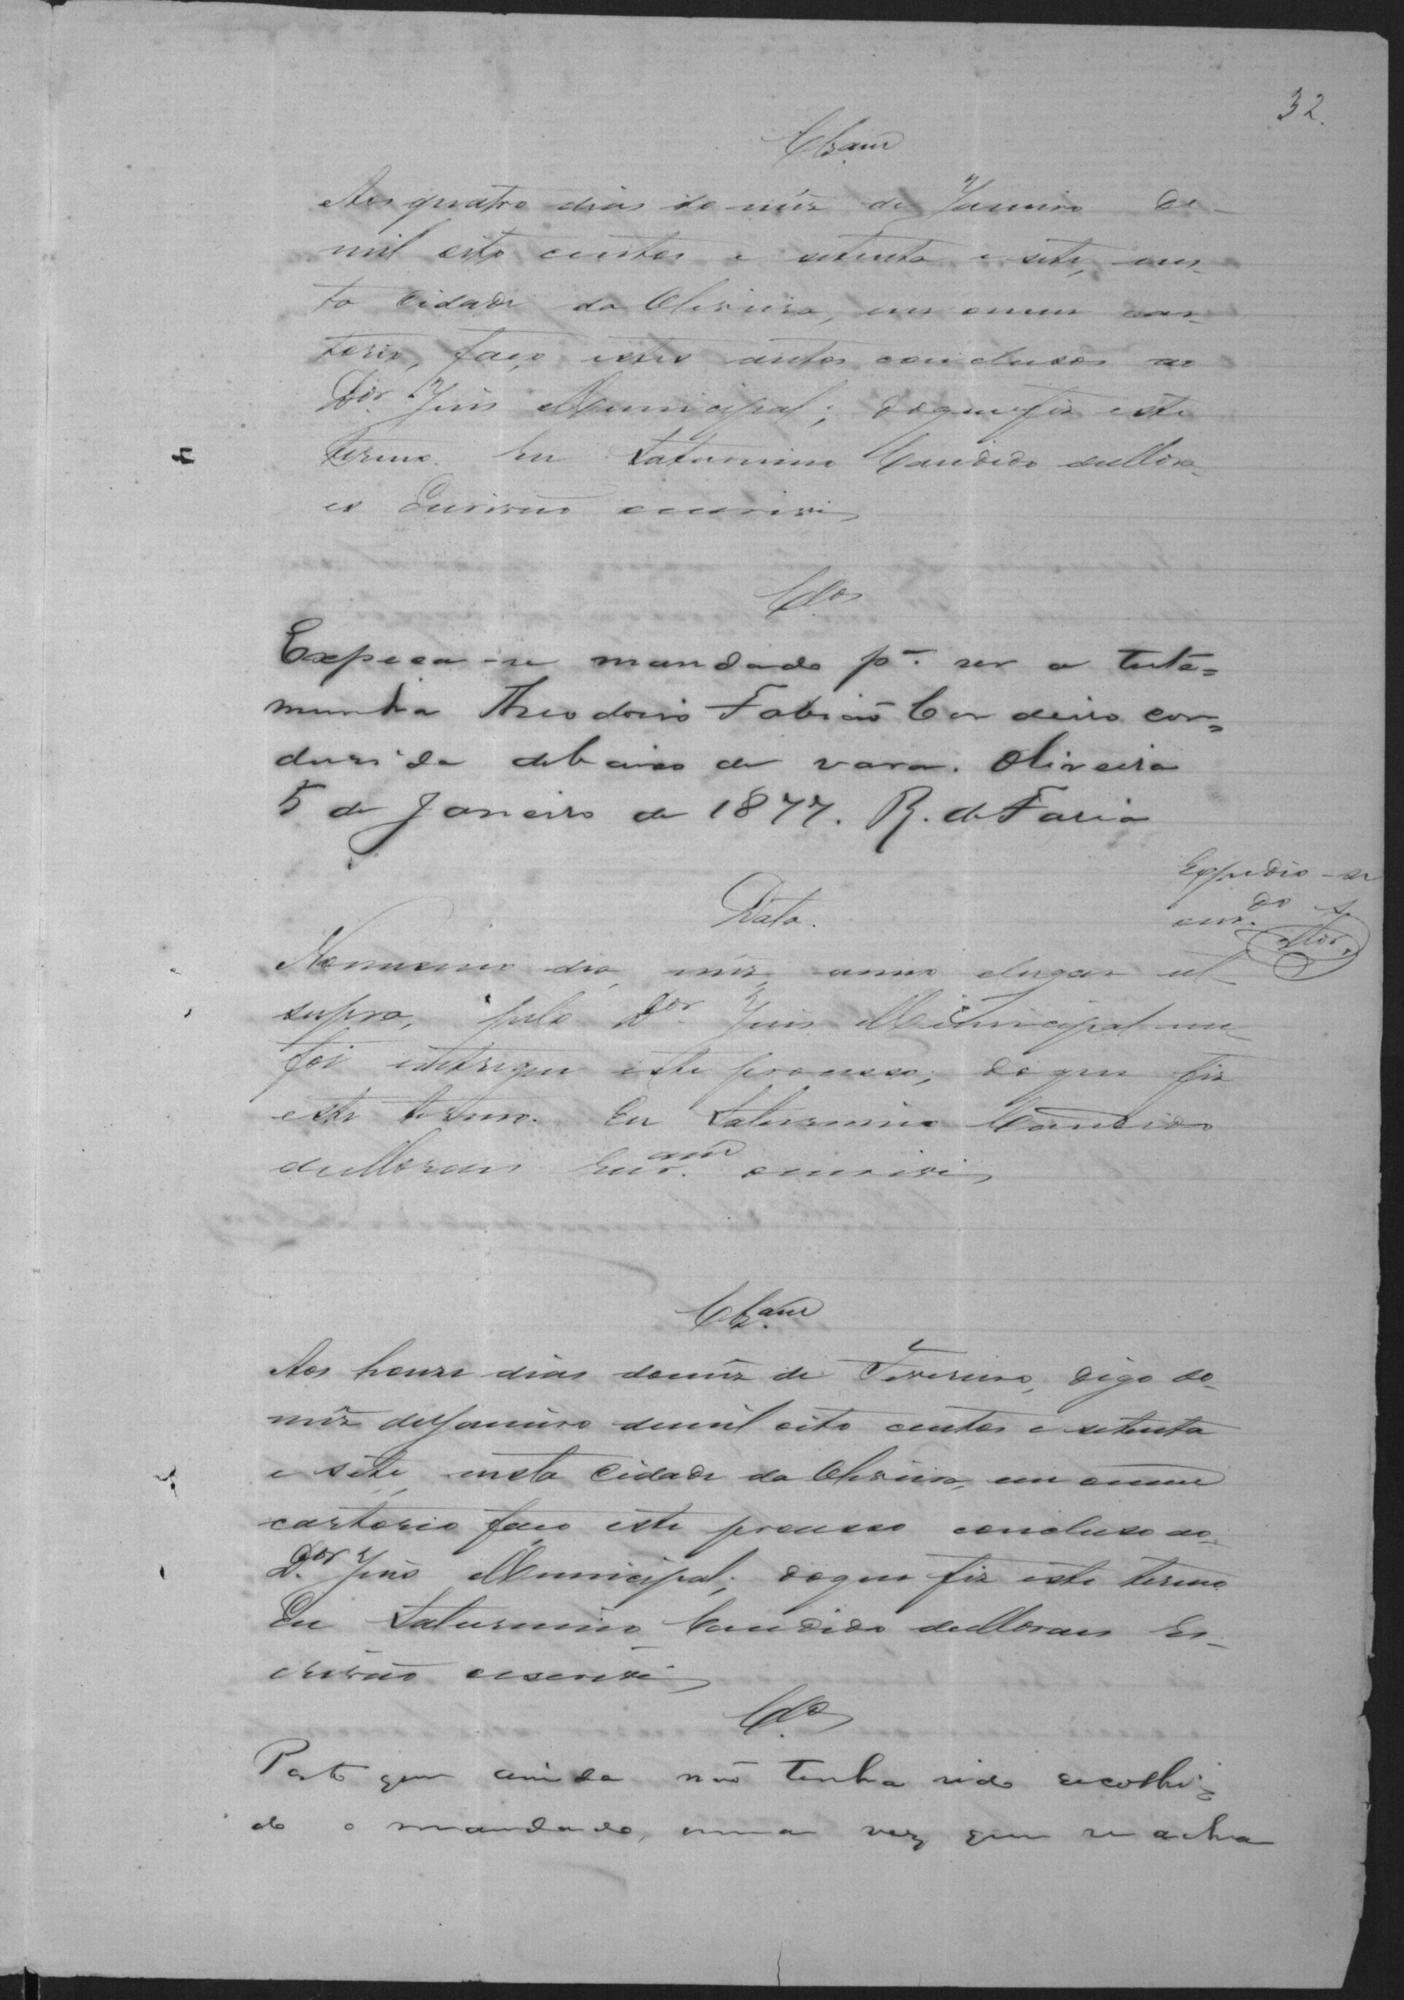 32.
Clzam
Aos quatro dias do mêz de Janeiro de
mil oito centos e setenta e sete, nes-
ta Cidade da Oliveira, em o meu car-
torio, faço estes autos conclusos ao
Dor. Juis Municipal; do que fiz este
termo. Eu Saturnino Candido de Mora-
es Escrivão escrevi
Clos
Expeça-se mandado pa. ser a teste=
munha Theodosio Fabião Cordeiro con=
dusida debaixo de vara. Oliveira
5 de Janeiro de 1877. R. de Faria
Expedio-se
Mor.
Data.
No mesmo dia, mêz, anno e lugar ut
supra, pelo Dor. Juis Municipal me
foi entregue este processo; do que fiz
este termo. Eu Saturnino Candido
de Moraes Escr.am escrevi
Clzam
Aos honze dias do mêz de Fevereiro, digo do
mêz de Janeiro de mil oito centos e setenta
e sete, nesta Cidade da Oliveira, em o meu
cartorio faço este processo concluso ao
Dor. Juis Municipal; do que fiz este termo
Eu Saturnino Candido de Moraes Es-
crivão escrevi
Clo
Posto que ainda não tenha sido recolhi=
do o mandado, uma vez que se acha